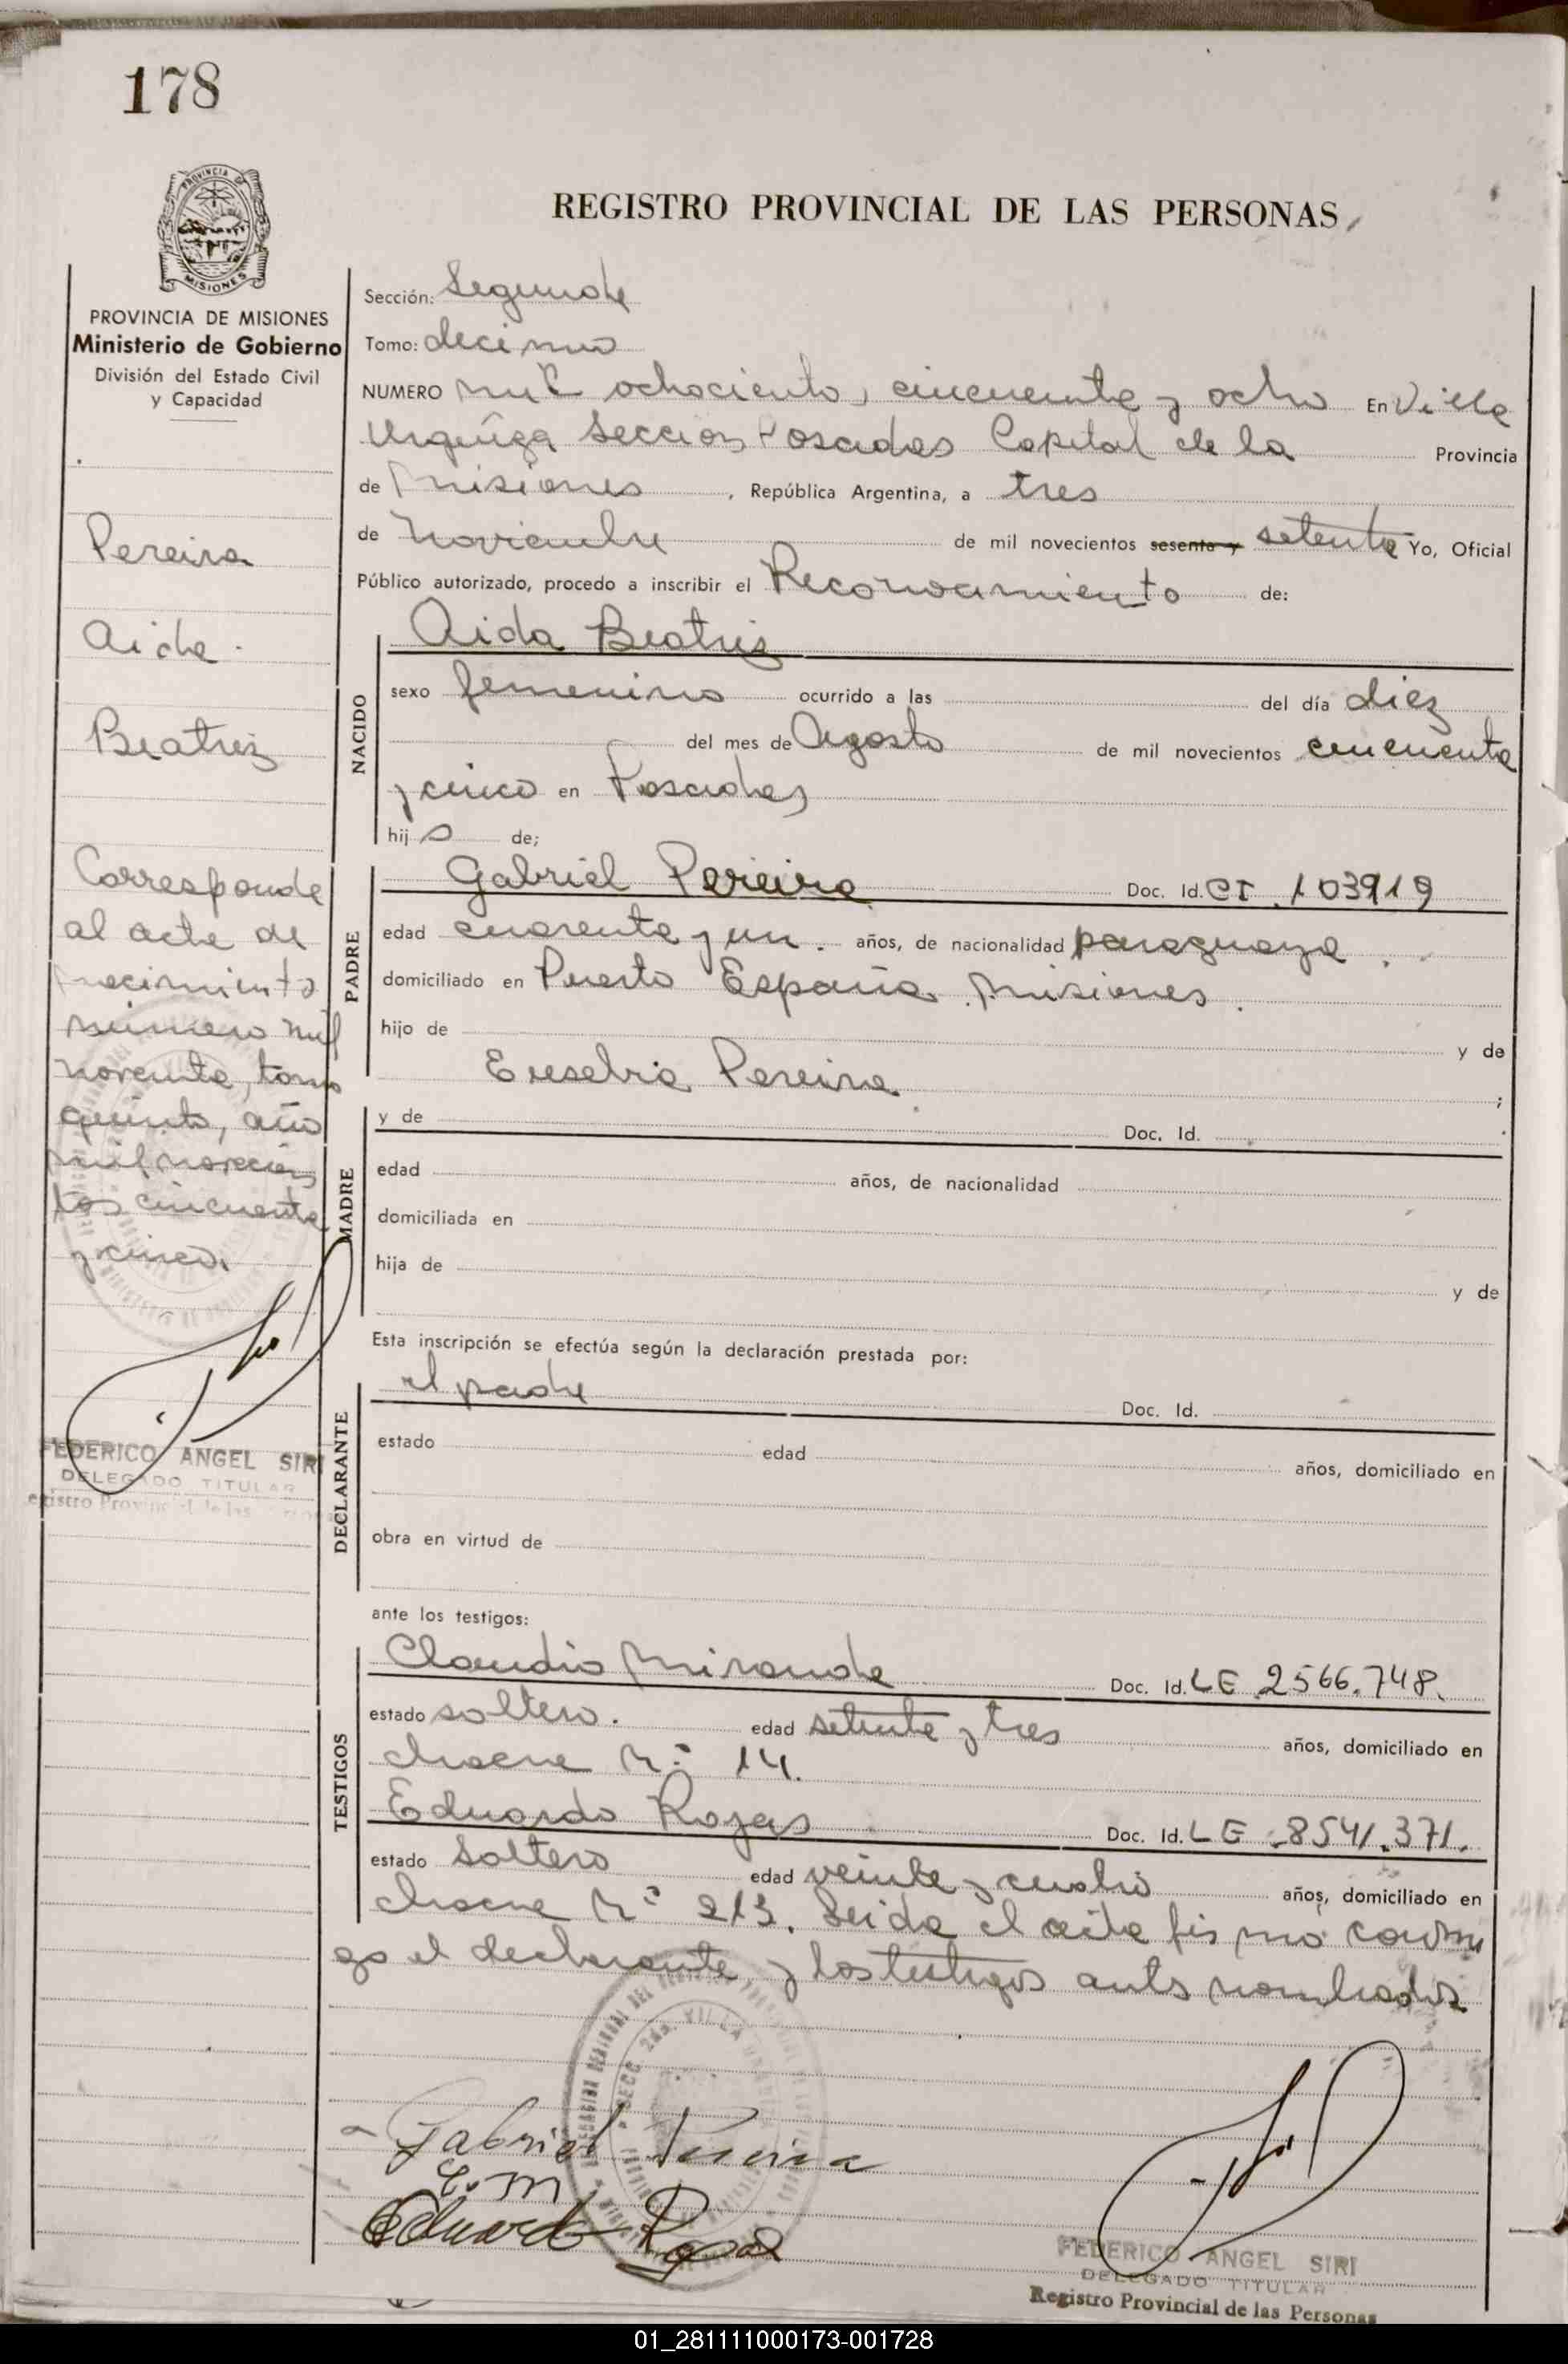 178
PROVINCIA DE
MISIONES
PROVINCIA DE MISIONES
Ministerio de Gobierno
División del Estado Civil
y Capacidad
Pereira
Aida
Beatriz
Corresponde
al acta de
nacimiento
número mil
noventa, tomo
quinto, año
mil novecien
tos cincuenta
y cinco.
FEDERICO ANGEL SIRI
DELEGADO TITULAR
REGISTRO PROVINCIAL DE LAS PERSONAS
Sección: Segunda
Tomo: decimo
NUMERO mil ochociento, cincuenta y ocho En Villa
Urquiza Seccion Posadas Capital de la Provincia
de Misiones, República Argentina, a tres
de noviembre de mil novecientos sesenta y setenta Yo, Oficial
Público autorizado, procedo a inscribir el Reconocimiento de:
NACIDO
Aida Beatriz
sexo femenino ocurrido a las del día diez
del mes de Agosto de mil novecientos cincuenta
y cinco en Posadas
hij a de;
PADRE
Gabriel Pereira Doc. Id. CI. 103919
edad cuarenta y un. años, de nacionalidad paraguaya.
domiciliado en Puerto España Misiones.
hijo de y de
Eusebia Pereira ;
MADRE
y de Doc. Id.
edad años, de nacionalidad
domiciliada en
hija de y de
Esta inscripción se efectúa según la declaración prestada por:
DECLARANTE
el padre Doc. Id.
estado edad años, domiciliado en
obra en virtud de
ante los testigos:
TESTIGOS
Claudio Miranda Doc. Id. LE 2566.748.
estado soltero. edad setenta y tres años, domiciliado en
chacra N° 14.
Eduardo Rojas Doc. Id. LE 8541.371.
estado soltero edad veinte y cuatro años, domiciliado en
chacra N° 213. Leida el acta firma conmi
go el declarante, y los testigos antes nombrados
Gabriel Pereira
C. M
Eduardo Rojas
FEDERICO ANGEL SIRI
DELEGADO TITULAR
Registro Provincial de las Personas
01_281111000173-001728